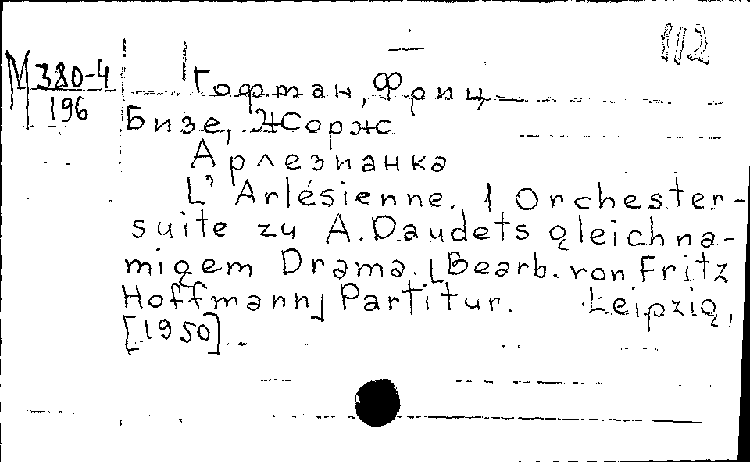 112
М 380-4
196
Гофман, Фриц
Бизе, Жорж
Арлезианка
L'Arlésienne. 1 Orchester-
suite zu A. Daudets gleichna-
migem Drama. [Bearb. von Fritz
Hoffmann] Partitur. Leipzig,
[1950]